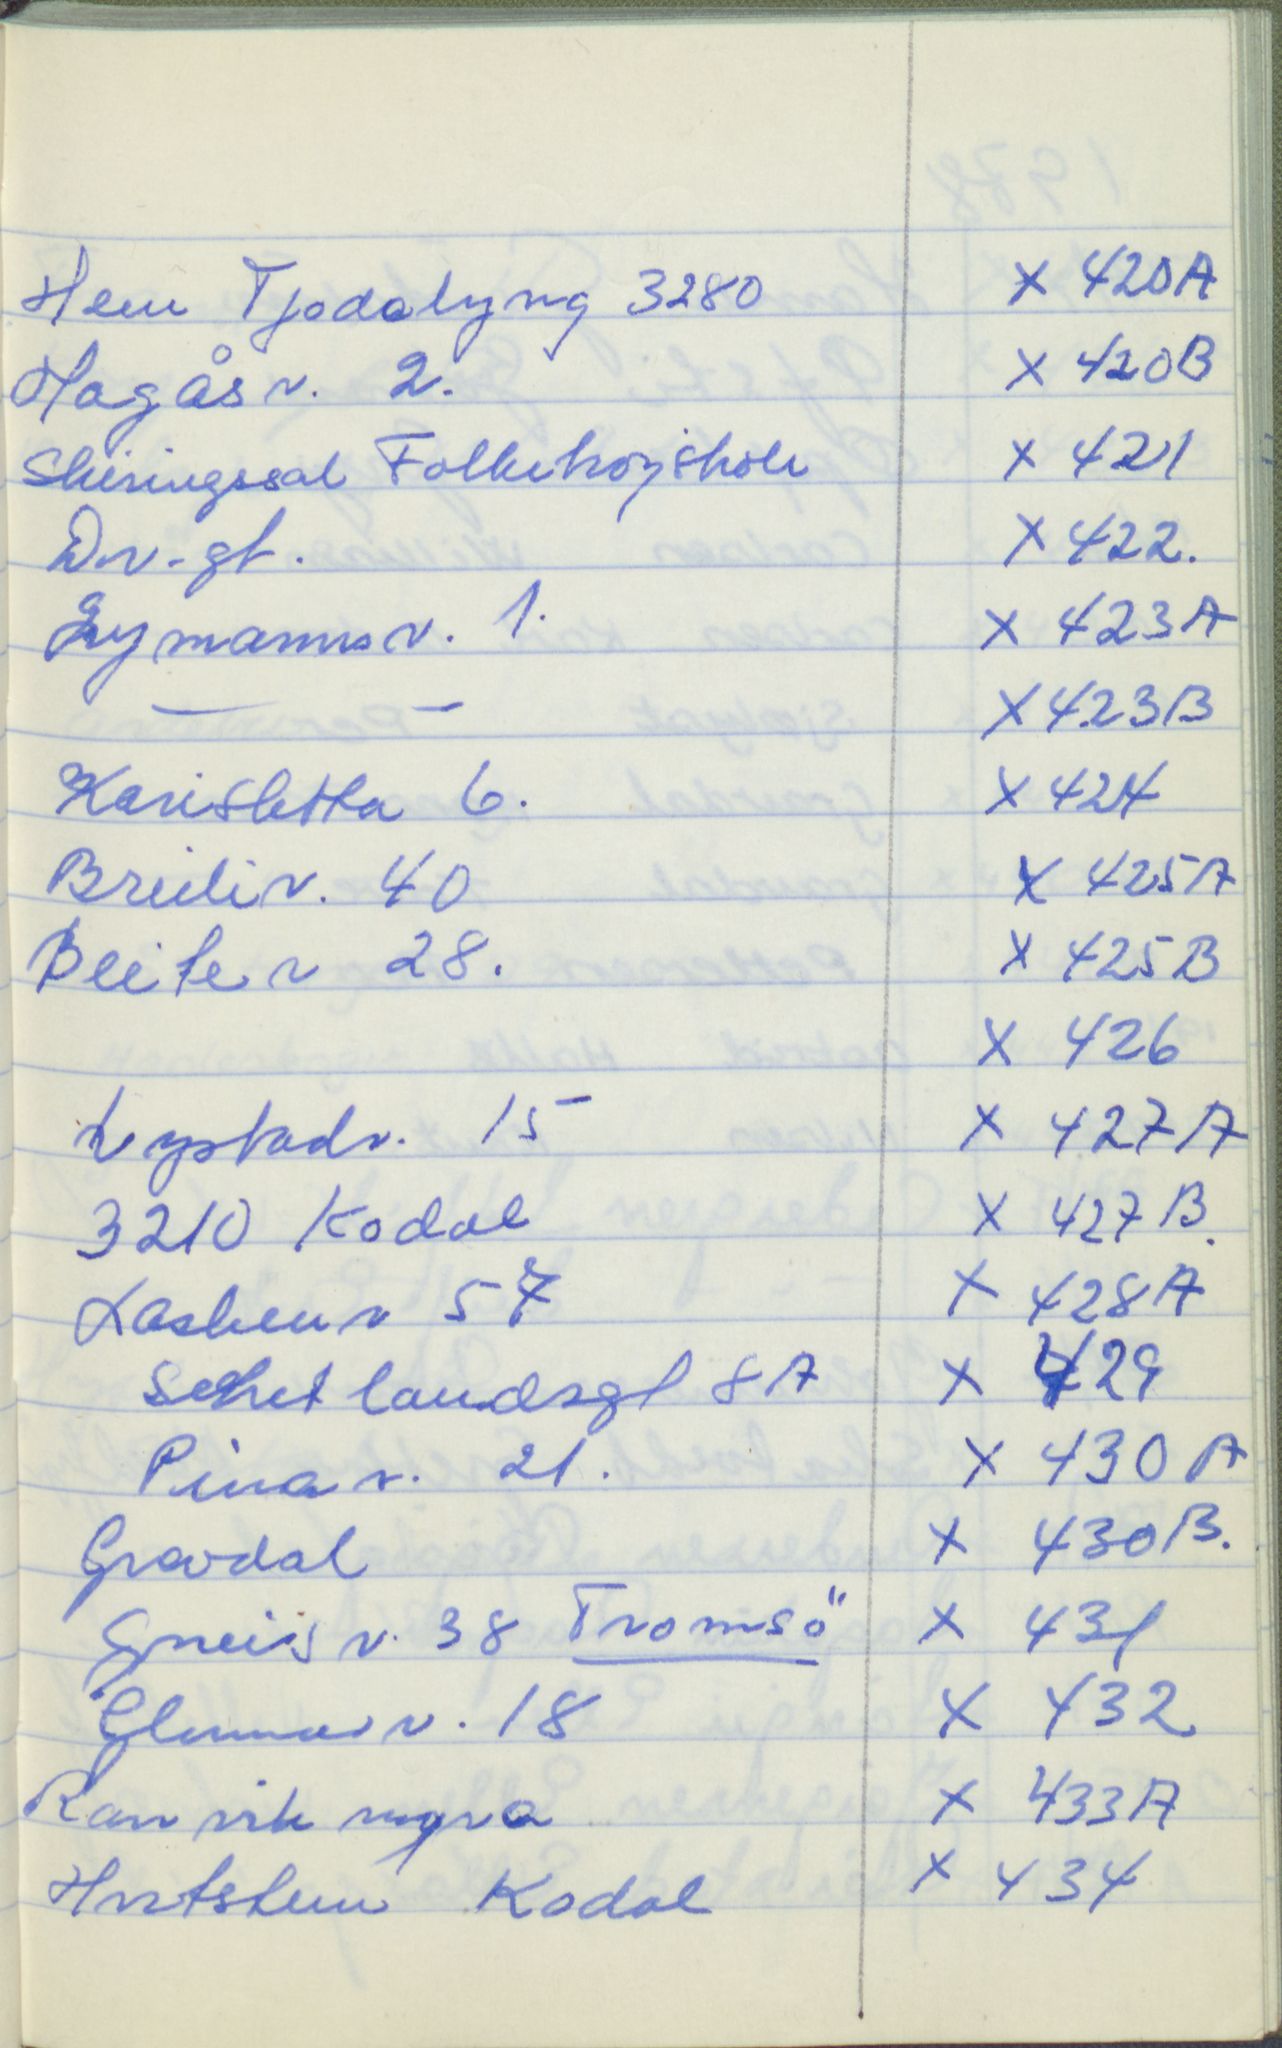 Hem Tjodalyng 3280 x 420A
Hagåsv. 2. x 420B
Skiringssal Folkehøjskole x 421
Dr-gt. x 422.
Lymannsv. 1. x 423A
— - x 423B
Karisletta 6. x 424
Breiliv. 40 x 425A
Beitev 28. x 425B
x 426
Lystadv. 15 x 427A
3210 Kodal x 427B.
Laskenv 57 x 428A
Schetlandsgt 8A x 429
Pinav. 21. x 430A
Gravdal x 430B.
Gneisv. 38 Tromsö x 431
Glimmerv. 18 x 432
Ranvik myra x 433A
Kodal x 434